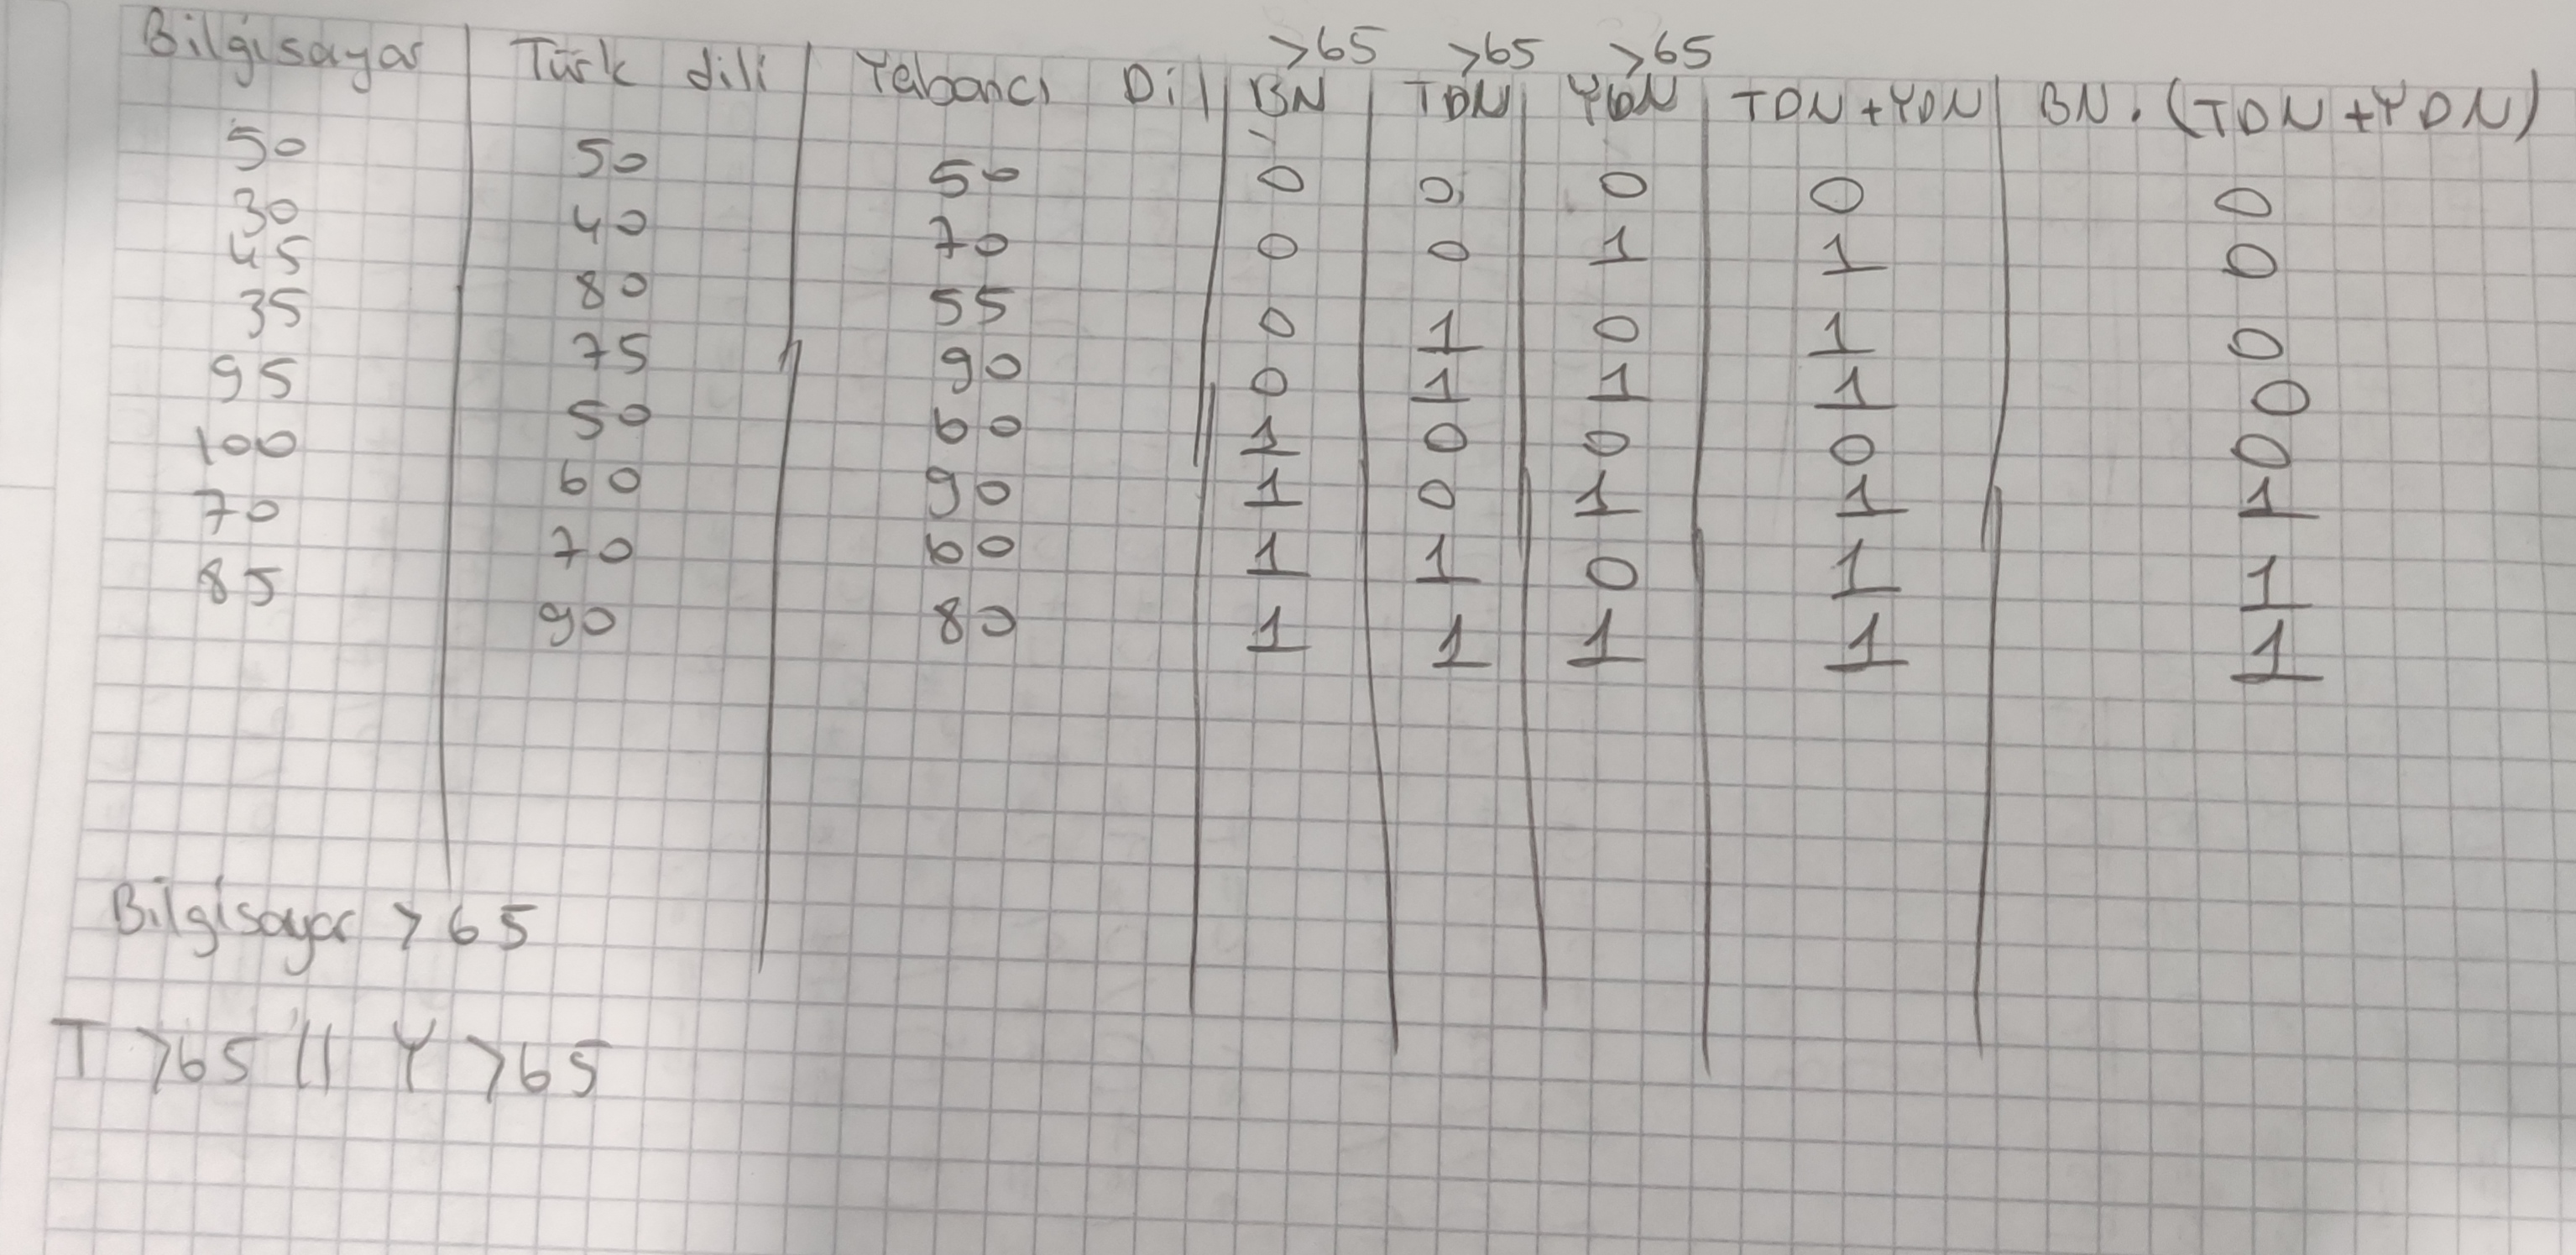 >65 >65 >65
Bilgisayar Türk dili Yabancı Dil BN TDN YDN TDN+YDN BN.(TDN+YDN)
50 50 50 0 0 0 0 0
30 40 70 0 0 1 1 0
45 80 55 0 1 0 1 0
35 75 90 0 1 1 1 0
95 50 60 1 0 0 0 0
100 60 90 1 0 1 1 1
70 70 60 1 1 0 1 1
85 90 80 1 1 1 1 1
Bilgisayar >65
T >65 || Y >65